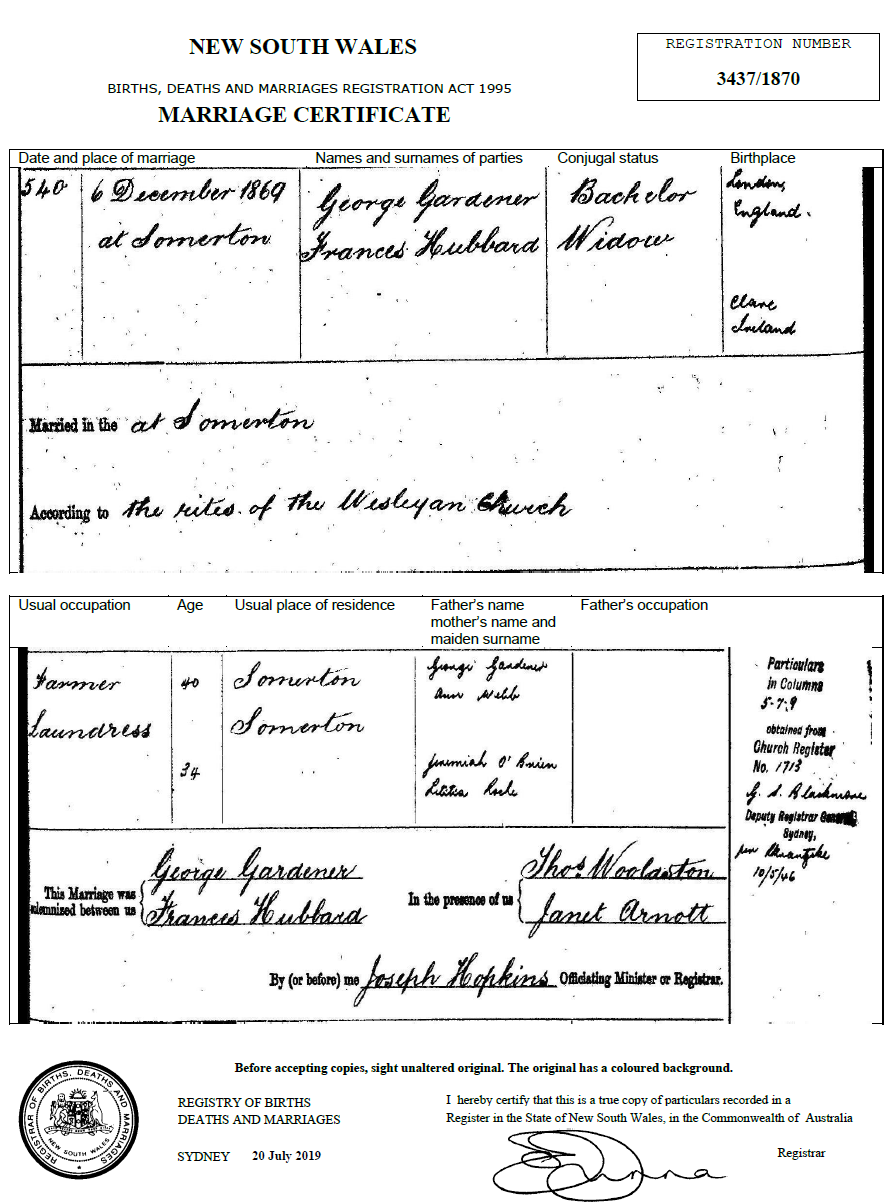 NEW SOUTH WALES
REGISTRATION NUMBER
3437/1870
BIRTHS, DEATHS AND MARRIAGES REGISTRATION ACT 1995
MARRIAGE CERTIFICATE
Date and place of marriage Names and surnames of parties Conjugal status Birthplace
540 6 December 1869 George Gardener Bachelor London,
England.
at Somerton Frances Hubbard Widow
Clare
Ireland
Married in the at Somerton
According to the rites of the Wesleyan Church
Usual occupation Age Usual place of residence Father's name Father's occupation
mother's name and
maiden surname
Farmer 40 Somerton George Gardener
Ann Webb
Laundress Somerton
34 Jeremiah O'Brien
Letitia Roche
Particulars
in Columns
5-7-9
obtained from
Church Register
No. 1713
G. S. Blackmore
Deputy Registrar General
Sydney,
per
10/5/46
This Marriage was
solemnised between us
George Gardener
Frances Hubbard
In the presence of us
Thos. Woolaston
Janet Arnott
By (or before) me Joseph Hopkins Officiating Minister or Registrar.
Before accepting copies, sight unaltered original. The original has a coloured background.
REGISTRAR OF BIRTHS, DEATHS AND MARRIAGES
NEW SOUTH WALES
REGISTRY OF BIRTHS
DEATHS AND MARRIAGES
SYDNEY 20 July 2019
I hereby certify that this is a true copy of particulars recorded in a
Register in the State of New South Wales, in the Commonwealth of Australia
Registrar